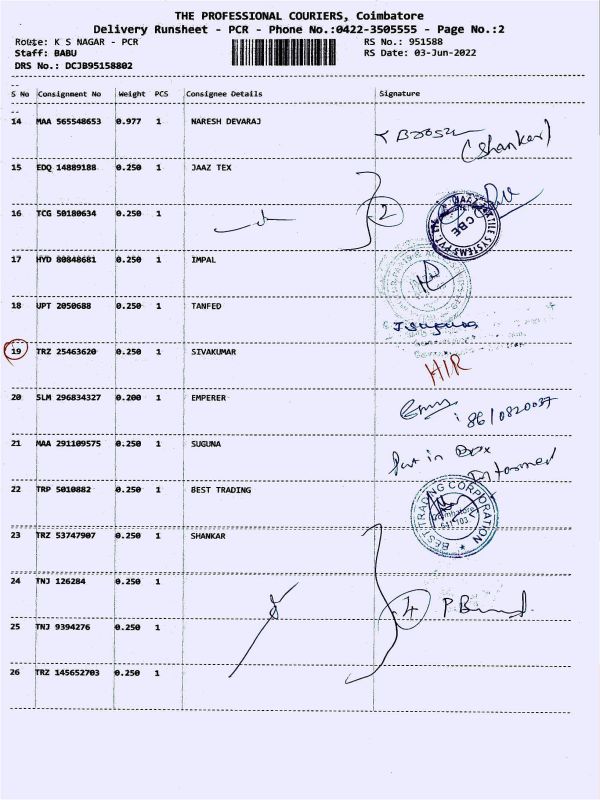 THE PROFESSIONAL COURIERS, Coimbatore
Delivery Runsheet - PCR - Phone No.:0422-3505555 - Page No.:2
Route: K S NAGAR - PCR RS No.: 951588
Staff: BABU RS Date: 03-Jun-2022
DRS No.: DCJB95158802
S No Consignment No Weight PCS Consignee Details Signature
14 MAA 565548653 0.977 1 NARESH DEVARAJ
(Shankar)
15 EDQ 14889188 0.250 1 JAAZ TEX
2
16 TCG 50180634 0.250 1
CBE
17 HYD 80848681 0.250 1 IMPAL
18 UPT 2050688 0.250 1 TANFED
19 TRZ 25463620 0.250 1 SIVAKUMAR
HIR
20 SLM 296834327 0.200 1 EMPERER
86/0820037
21 MAA 291109575 0.250 1 SUGUNA
Put in Box
Informed
22 TRP 5010882 0.250 1 BEST TRADING
BEST TRADING CORPORATION
Coimbatore
641 103
23 TRZ 53747907 0.250 1 SHANKAR
24 TNJ 126284 0.250 1
4
25 TNJ 9394276 0.250 1
26 TRZ 145652703 0.250 1